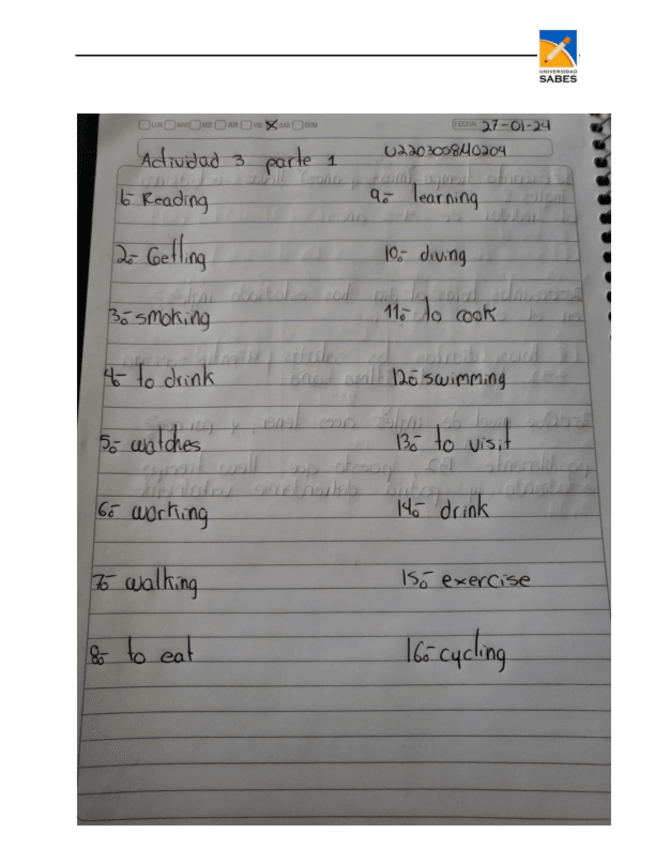 UNIVERSIDAD
SABES
LUN MAR MIE JUE VIE SAB DOM FECHA 27-01-24
Actividad 3 parte 1 U2203008M0204
1.- Reading
2.- Getting
3.- smoking
4.- to drink
5.- watches
6.- working
7.- walking
8.- to eat
9.- learning
10.- diving
11.- to cook
12.- swimming
13.- to visit
14.- drink
15.- exercise
16.- cycling